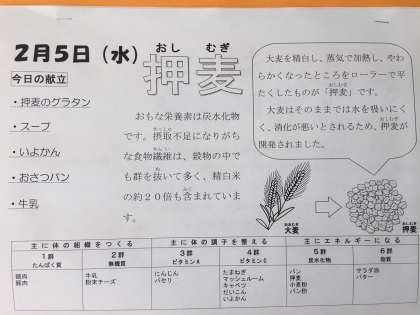 2月5日（水）
おし むぎ
押麦
今日の献立
・押麦のグラタン
・スープ
・いよかん
・おさつパン
・牛乳
おもな栄養素は炭水化物
です。摂取不足になりがち
な食物繊維は、穀物の中で
も群を抜いて多く、精白米
の約２０倍も含まれていま
す。
大麦を精白し、蒸気で加熱し、やわ
らかくなったところをローラーで平
たくしたものが「押麦」です。
大麦はそのままでは水を吸いにく
く、消化が悪いとされるため、押麦が
開発されました。
おおむぎ
大麦
おしむぎ
押麦
主に体の組織をつくる
主に体の調子を整える
主にエネルギーになる
1群
たんぱく質
2群
無機質
3群
ビタミンA
4群
ビタミンC
5群
炭水化物
6群
脂質
鶏肉
豚肉
牛乳
粉末チーズ
にんじん
パセリ
たまねぎ
マッシュルーム
キャベツ
だいこん
いよかん
パン
押麦
小麦粉
パン粉
サラダ油
バター